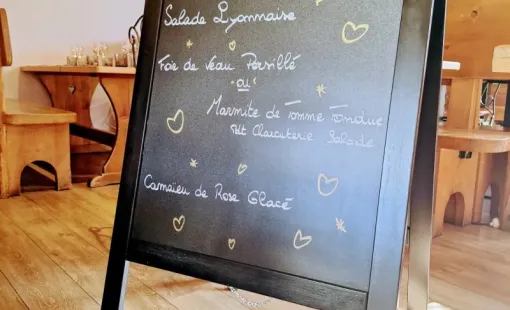 Salade Lyonnaise
Foie de Veau Persillé
ou
Marmite de Tomme Fondue
Pdt Charcuterie Salade
Camaïeu de Rose Glacé